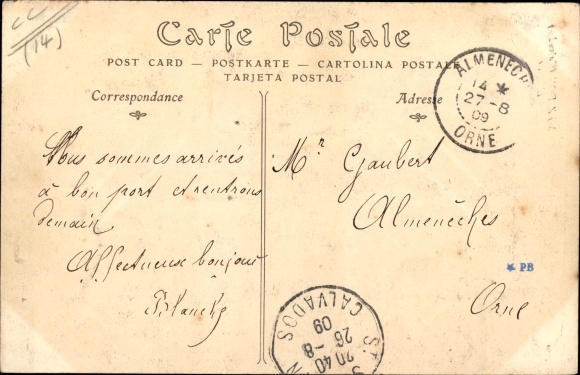 CC
(14)
Carte Postale
POST CARD — POSTKARTE — CARTOLINA POSTALE
TARJETA POSTAL
Correspondance
Adresse
ALMENECH
14 *
27-8
09
ORNE
Nous sommes arrivés
à bon port et rentrons
demain
Affectueux bonjour
Blanche
Mr Gaubert
Almenêches
Orne
* PB
CALVADOS
20 40
26-8
09